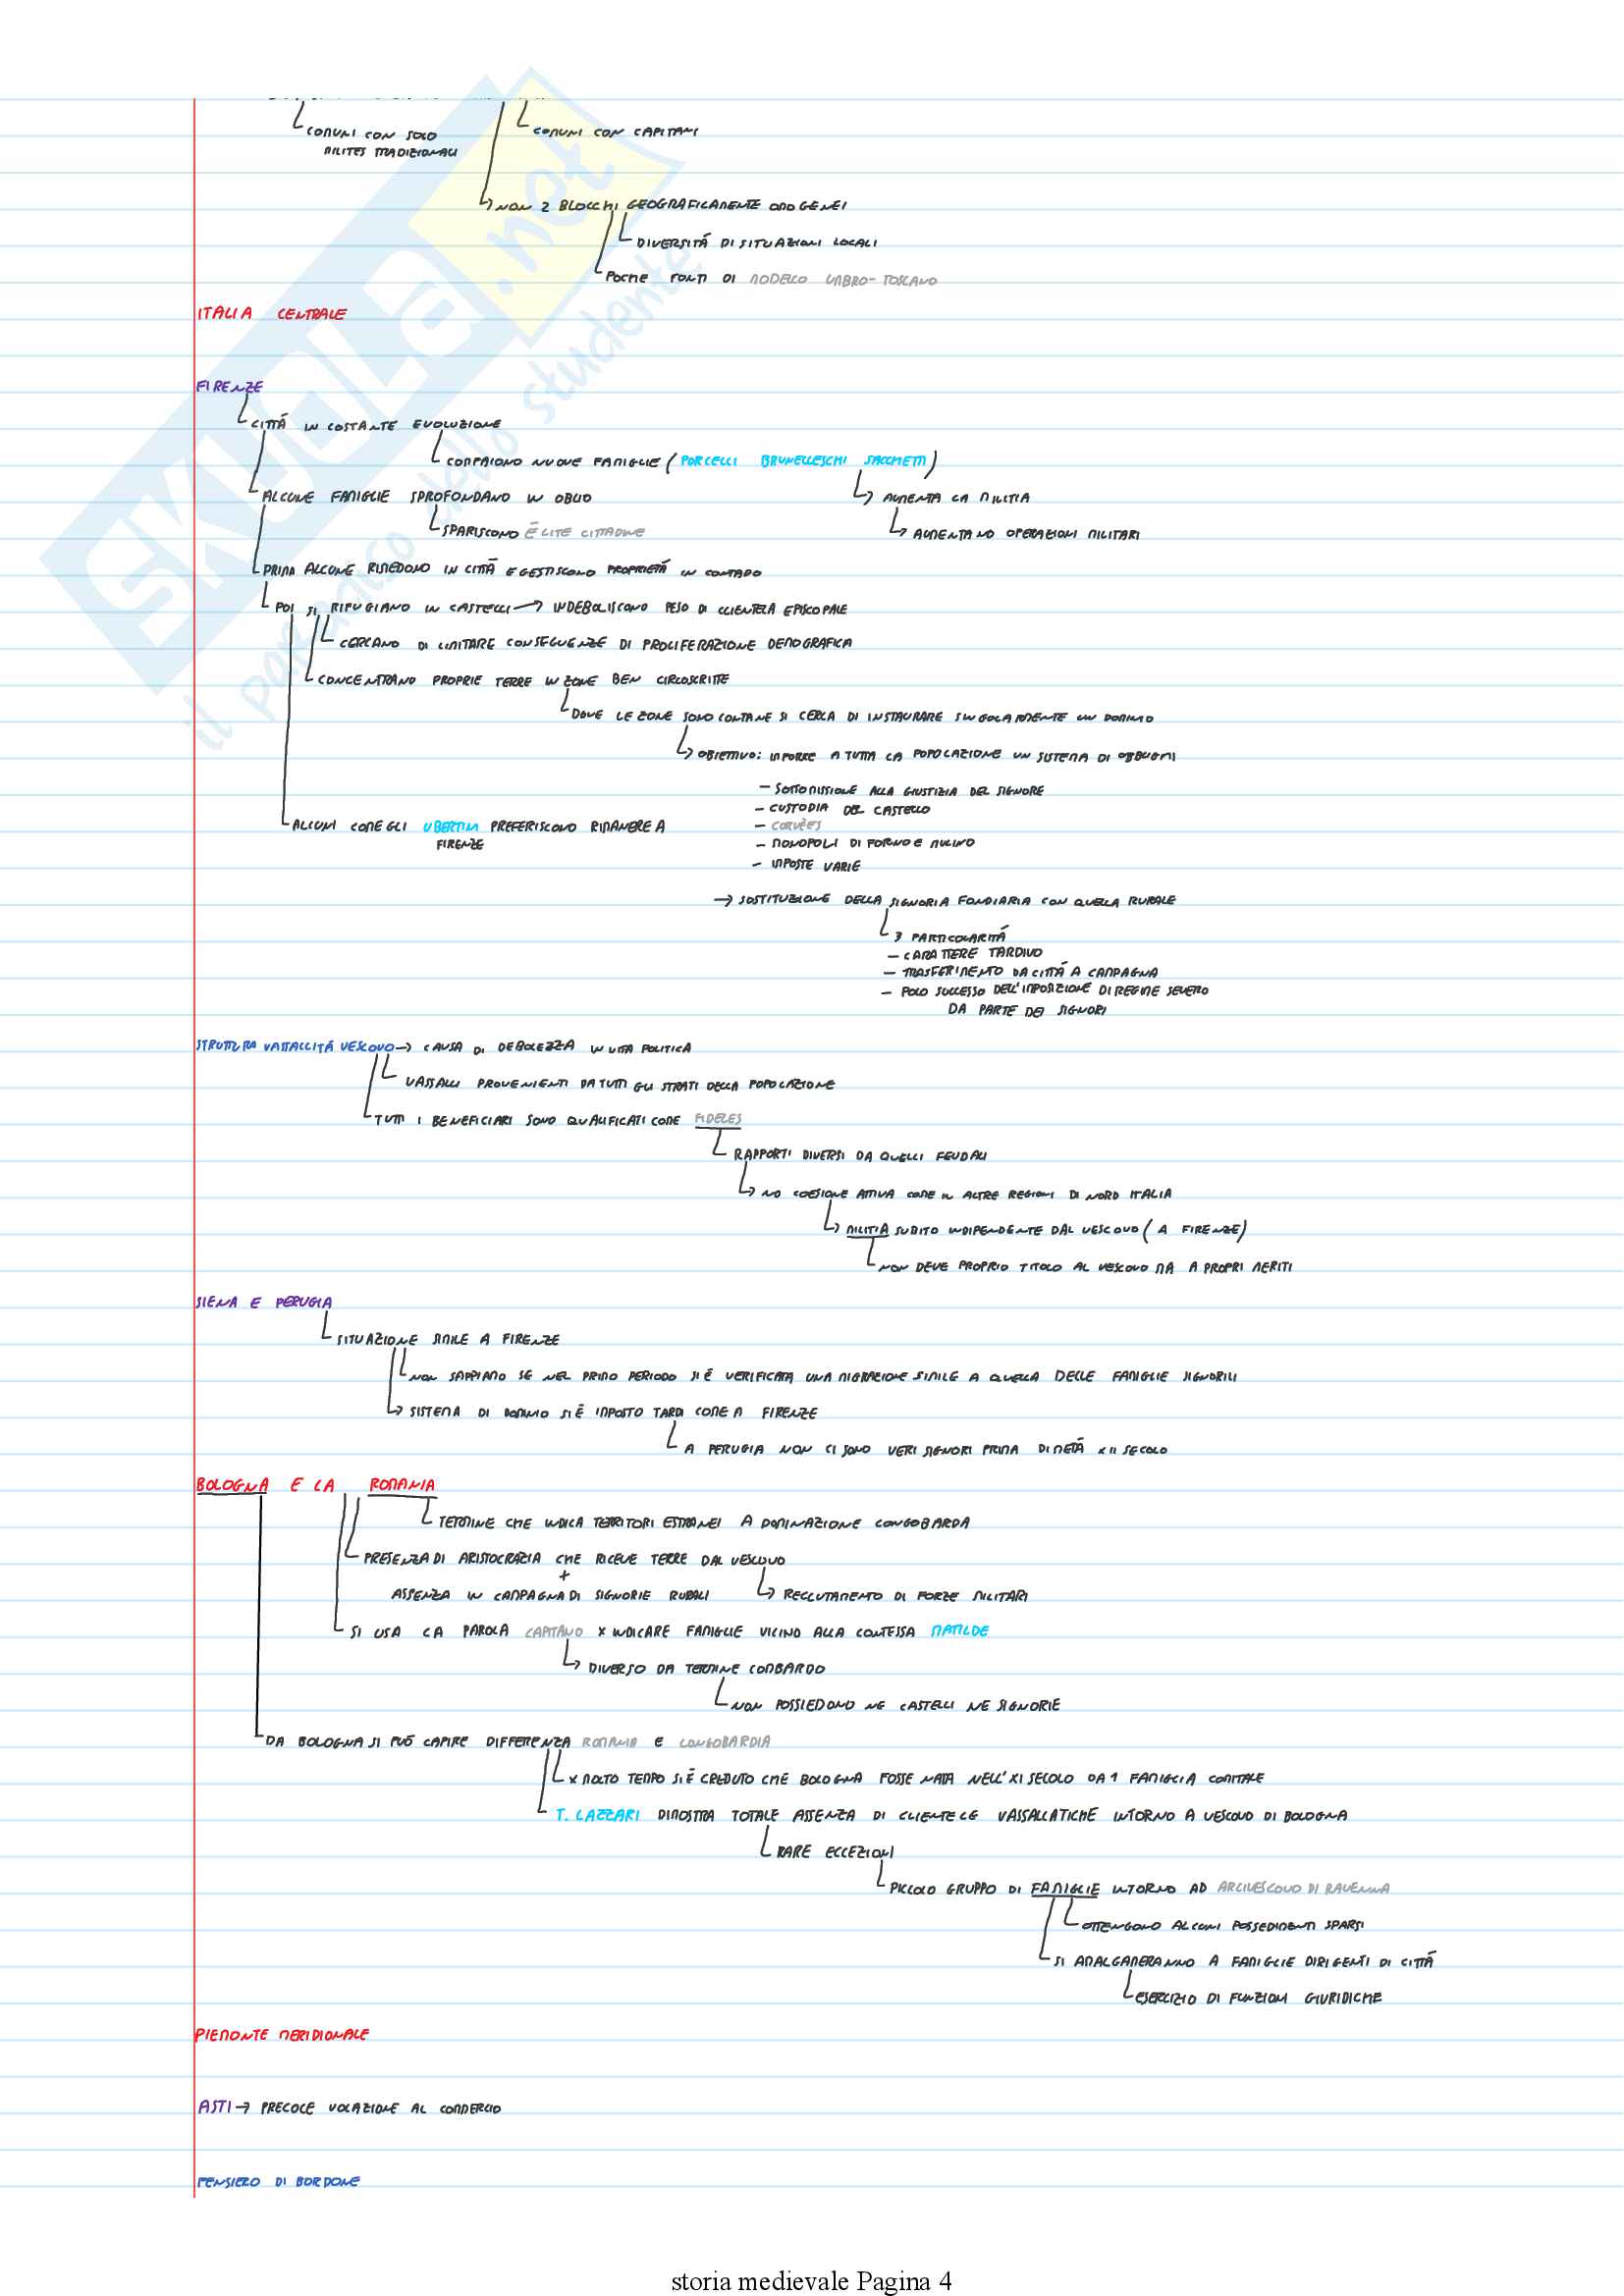 COMUNI CON SOLO
MILITES TRADIZIONALI
COMUNI CON CAPITANI
NON 2 BLOCCHI GEOGRAFICAMENTE OMOGENEI
DIVERSITÁ DI SITUAZIONI LOCALI
POCHE FONTI DI MODELLO UMBRO-TOSCANO
ITALIA CENTRALE
FIRENZE
CITTÁ IN COSTANTE EVOLUZIONE
COMPAIONO NUOVE FAMIGLIE (PORCELLI BRUNELLESCHI SACCHETTI)
ALCUNE FAMIGLIE SPROFONDANO IN OBLIO
AUMENTA LA MILITIA
SPARISCONO ÉLITE CITTADINE
AUMENTANO OPERAZIONI MILITARI
PRIMA ALCUNE RISIEDONO IN CITTÁ E GESTISCONO PROPRIETÁ IN CONTADO
POI SI RIFUGIANO IN CASTELLI → INDEBOLISCONO PESO DI CLIENTELA EPISCOPALE
CERCANO DI LIMITARE CONSEGUENZE DI PROLIFERAZIONE DEMOGRAFICA
CONCENTRANO PROPRIE TERRE IN ZONE BEN CIRCOSCRITTE
DOVE LE ZONE SONO LONTANE SI CERCA DI INSTAURARE SINGOLARMENTE UN DOMINIO
OBIETTIVO: IMPORRE A TUTTA LA POPOLAZIONE UN SISTEMA DI OBBLIGHI
- SOTTOMISSIONE ALLA GIUSTIZIA DEL SIGNORE
- CUSTODIA DEL CASTELLO
- CORVÈES
- MONOPOLI DI FORNO E MULINO
- IMPOSTE VARIE
ALCUNI COME GLI UBERTINI PREFERISCONO RIMANERE A
FIRENZE
→ SOSTITUZIONE DELLA SIGNORIA FONDIARIA CON QUELLA RURALE
3 PARTICOLARITÁ
- CARATTERE TARDIVO
- TRASFERIMENTO DA CITTÁ A CAMPAGNA
- POCO SUCCESSO DELL'IMPOSIZIONE DI REGIME SEVERO
DA PARTE DEI SIGNORI
STRUTTURA VASSALLITÁ VESCOVO → CAUSA DI DEBOLEZZA IN VITA POLITICA
VASSALLI PROVENIENTI DA TUTTI GLI STRATI DELLA POPOLAZIONE
TUTTI I BENEFICIARI SONO QUALIFICATI COME FIDELES
RAPPORTI DIVERSI DA QUELLI FEUDALI
NO COESIONE ATTIVA COME IN ALTRE REGIONI DI NORD ITALIA
MILITIA SUBITO INDIPENDENTE DAL VESCOVO (A FIRENZE)
NON DEVE PROPRIO TITOLO AL VESCOVO MA A PROPRI MERITI
SIENA E PERUGIA
SITUAZIONE SIMILE A FIRENZE
NON SAPPIAMO SE NEL PRIMO PERIODO SI È VERIFICATA UNA MIGRAZIONE SIMILE A QUELLA DELLE FAMIGLIE SIGNORILI
SISTEMA DI DOMINIO SI È IMPOSTO TARDI COME A FIRENZE
A PERUGIA NON CI SONO VERI SIGNORI PRIMA DI METÁ XII SECOLO
BOLOGNA E LA ROMANIA
TERMINE CHE INDICA TERRITORI ESTRANEI A DOMINAZIONE LONGOBARDA
PRESENZA DI ARISTOCRAZIA CHE RICEVE TERRE DAL VESCOVO
+
ASSENZA IN CAMPAGNA DI SIGNORIE RURALI
RECLUTAMENTO DI FORZE MILITARI
SI USA LA PAROLA CAPITANO X INDICARE FAMIGLIE VICINO ALLA CONTESSA MATILDE
DIVERSO DA TERMINE LOMBARDO
NON POSSIEDONO NE CASTELLI NE SIGNORIE
DA BOLOGNA SI PUÓ CAPIRE DIFFERENZA ROMANIA E LONGOBARDIA
X MOLTO TEMPO SI È CREDUTO CHE BOLOGNA FOSSE NATA NELL'XI SECOLO DA 1 FAMIGLIA COMITALE
T. LAZZARI DIMOSTRA TOTALE ASSENZA DI CLIENTELE VASSALLATICHE INTORNO A VESCOVO DI BOLOGNA
RARE ECCEZIONI
PICCOLO GRUPPO DI FAMIGLIE INTORNO AD ARCIVESCOVO DI RAVENNA
OTTENGONO ALCUNI POSSEDIMENTI SPARSI
SI AMALGAMERANNO A FAMIGLIE DIRIGENTI DI CITTÁ
ESERCIZIO DI FUNZIONI GIURIDICHE
PIEMONTE MERIDIONALE
ASTI → PRECOCE VOCAZIONE AL COMMERCIO
PENSIERO DI BORDONE
SKUOLA.net
il paradiso dello studente
storia medievale Pagina 4